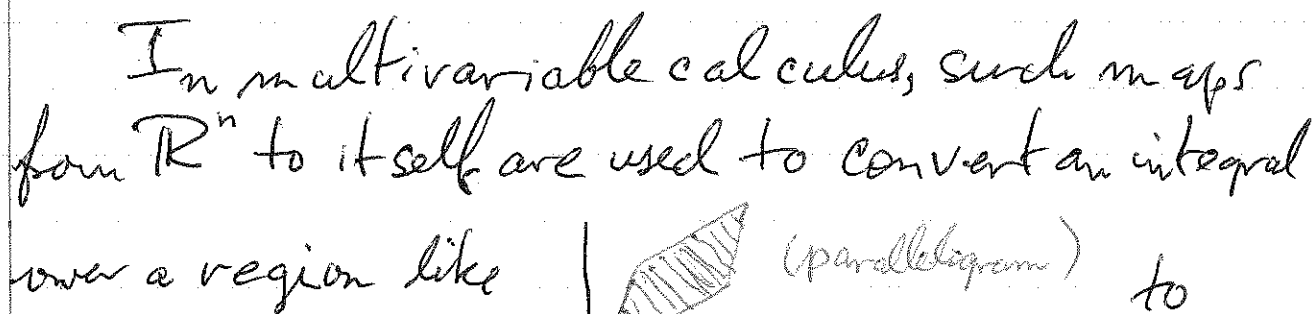 In multivariable calculus, such maps
from ℝⁿ to itself are used to convert an integral
over a region like (parallelogram) to